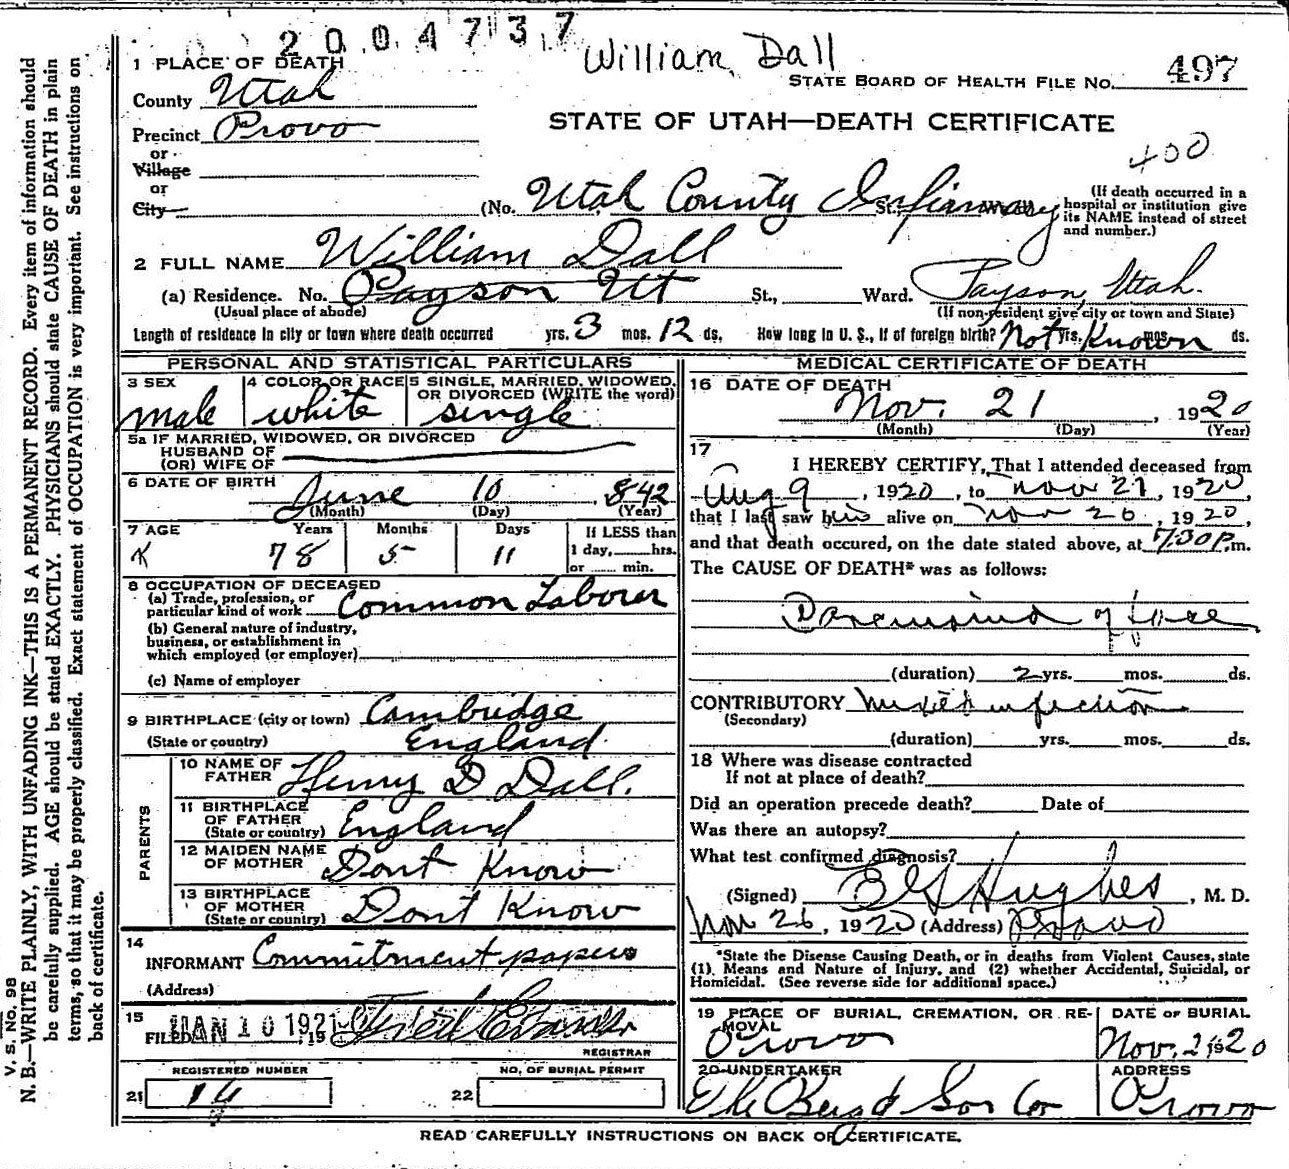 2004737
William Dall
1 PLACE OF DEATH
STATE BOARD OF HEALTH FILE NO. 497
County Utah
STATE OF UTAH—DEATH CERTIFICATE
Precinct Provo
400
or
Village
or
City
(No. Utah County Infirmary St.,
(If death occurred in a hospital or institution give its NAME instead of street and number.)
2 FULL NAME William Dall
(a) Residence. No. Payson Ut St., Ward. Payson, Utah.
(Usual place of abode)
(If non-resident give city or town and State)
Length of residence in city or town where death occurred yrs. 3 mos. 12 ds. How long in U. S., if of foreign birth? Not yrs. Known mos. ds.
PERSONAL AND STATISTICAL PARTICULARS
3 SEX male
4 COLOR OR RACE white
5 SINGLE, MARRIED, WIDOWED, OR DIVORCED (WRITE the word) single
5a IF MARRIED, WIDOWED, OR DIVORCED
HUSBAND OF
(OR) WIFE OF
6 DATE OF BIRTH June 10, 842
(Month) (Day) (Year)
7 AGE Years Months Days If LESS than
78 5 11 1 day, hrs.
or min.
8 OCCUPATION OF DECEASED
(a) Trade, profession, or particular kind of work Common Laborer
(b) General nature of industry, business, or establishment in which employed (or employer)
(c) Name of employer
9 BIRTHPLACE (city or town) Cambridge
(State or country) England
PARENTS
10 NAME OF FATHER Henry D Dall.
11 BIRTHPLACE OF FATHER (State or country) England
12 MAIDEN NAME OF MOTHER Dont Know
13 BIRTHPLACE OF MOTHER (State or country) Dont Know
14
INFORMANT Commitment papers
(Address)
15
FILED JAN 10 1921, 19 Fred Evans
REGISTRAR
REGISTERED NUMBER
21 14
NO. OF BURIAL PERMIT
22
MEDICAL CERTIFICATE OF DEATH
16 DATE OF DEATH
Nov. 21, 1920
(Month) (Day) (Year)
17
I HEREBY CERTIFY, That I attended deceased from
Aug 9, 1920, to Nov 21, 1920,
that I last saw him alive on Nov 20, 1920,
and that death occured, on the date stated above, at 7:30 P.m.
The CAUSE OF DEATH* was as follows:
of face
(duration) 2 yrs. mos. ds.
CONTRIBUTORY mixed infection
(Secondary)
(duration) yrs. mos. ds.
18 Where was disease contracted
If not at place of death?
Did an operation precede death? Date of
Was there an autopsy?
What test confirmed diagnosis?
(Signed) Hughes, M. D.
Nov 26, 1920 (Address) Provo
*State the Disease Causing Death, or in deaths from Violent Causes, state
(1) Means and Nature of Injury, and (2) whether Accidental, Suicidal, or
Homicidal. (See reverse side for additional space.)
19 PLACE OF BURIAL, CREMATION, OR REMOVAL
Provo
DATE OF BURIAL
Nov. 2 1920
20 UNDERTAKER
The Berg & Son Co
ADDRESS
Provo
READ CAREFULLY INSTRUCTIONS ON BACK OF CERTIFICATE.
V. S. No. 98
N. B.—WRITE PLAINLY, WITH UNFADING INK—THIS IS A PERMANENT RECORD. Every item of information should
be carefully supplied. AGE should be stated EXACTLY. PHYSICIANS should state CAUSE OF DEATH in plain
terms, so that it may be properly classified. Exact statement of OCCUPATION is very important. See instructions on
back of certificate.